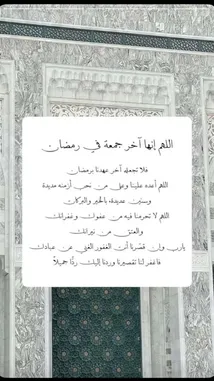 اللهم إنها آخر جمعة في رمضان
فلا تجعله آخر عهدنا برمضان
اللهم أعده علينا وعلى من نحب أزمنة مديدة
وسنين عديدة، بالخير والبركات
اللهم لا تحرمنا فيه من عفوك وغفرانك
والعتق من نيرانك
يارب وإن قصّرنا أنت الغفور الغني عن عبادك
فاغفر لنا تقصيرنا وردنا إليك ردًا جميلاً